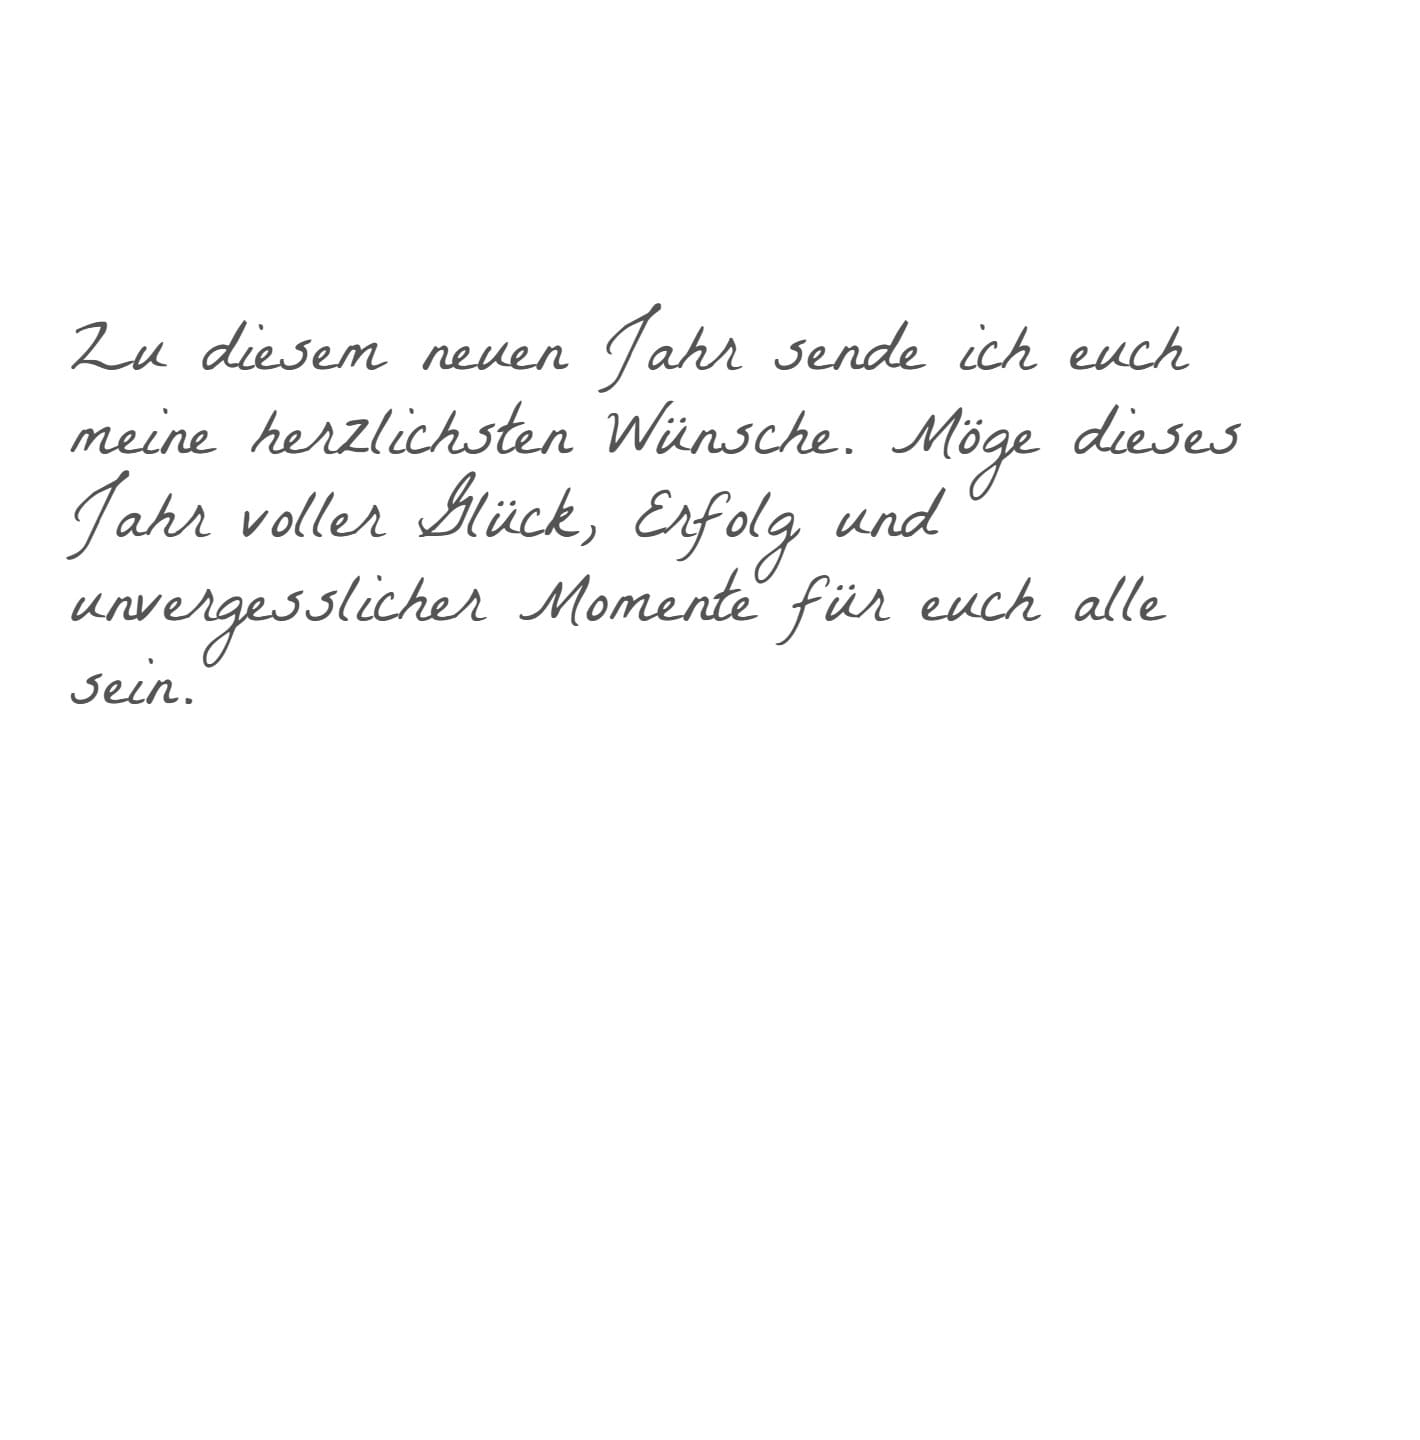 Zu diesem neuen Jahr sende ich euch
meine herzlichsten Wünsche. Möge dieses
Jahr voller Glück, Erfolg und
unvergesslicher Momente für euch alle
sein.